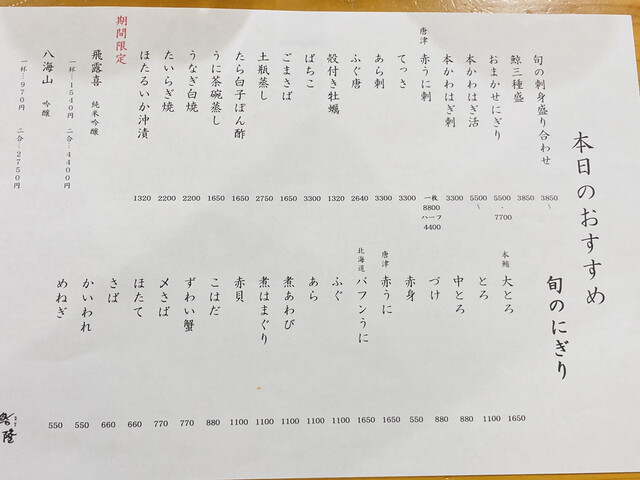 本日のおすすめ
旬の刺身盛り合わせ 3850〜
鯨三種盛 3850
おまかせにぎり 5500・7700
本かわはぎ活 5500〜
本かわはぎ刺 3300
唐津 赤うに刺 一枚 8800 ハーフ 4400
てっさ 3300
あら刺 3300
ふぐ唐 2640
殻付き牡蠣 1320
ばちこ 3300
ごまさば 1650
土瓶蒸し 2750
たら白子ぽん酢 1650
うに茶碗蒸し 1650
うなぎ白焼 2200
たいらぎ焼 2200
ほたるいか沖漬 1320
期間限定
飛露喜 純米吟醸
一杯…1540円 二合…4400円
八海山 吟醸
一杯…970円 二合…2750円
旬のにぎり
本鮪 大とろ 1650
とろ 1100
中とろ 880
づけ 880
赤身 550
唐津 赤うに 1650
北海道 バフンうに 1650
ふぐ 1100
あら 1100
煮あわび 1100
煮はまぐり 1100
赤貝 1100
こはだ 880
ずわい蟹 770
〆さば 770
ほたて 660
さば 660
かいわれ 550
めねぎ 550